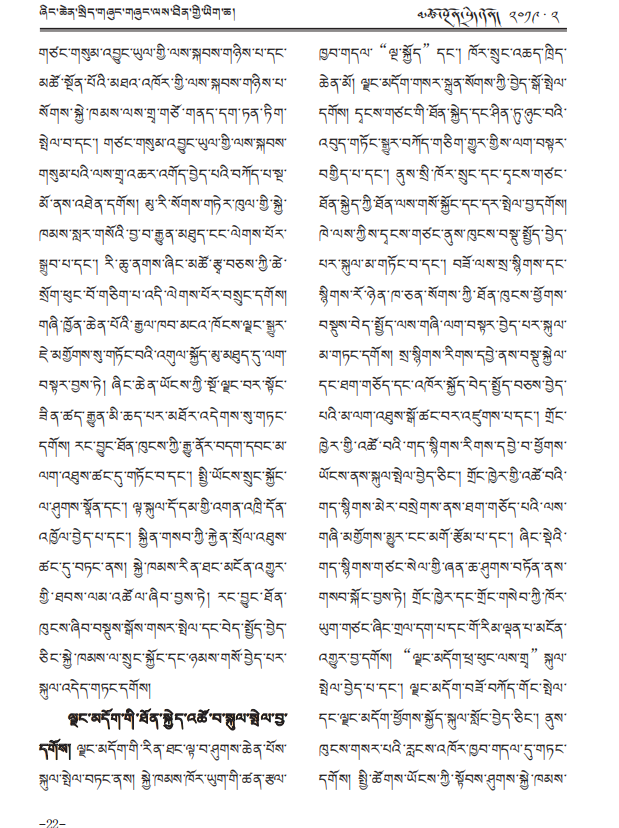 ཞིང་ཆེན་སྲིད་གཞུང་གཞུང་ལས་ཐིན་གྱི་ཡིག་ཆ།
༢༠༡༩ · ༢
གཙང་གསུམ་འབྱུང་ཡུལ་གྱི་ལས་སྐབས་གཉིས་པ་དང་
མཚོ་སྔོན་པོའི་མཐའ་འཁོར་གྱི་ལས་སྐབས་གཉིས་པ་
སོགས་སྐྱེ་ཁམས་ལས་གྲྭ་གཙོ་གནད་དག་ཏན་ཏིག་
སྤེལ་བ་དང་། གཙང་གསུམ་འབྱུང་ཡུལ་གྱི་ལས་སྐབས་
གསུམ་པའི་ལས་གྲྭ་འཆར་འགོད་བྱེད་པའི་བཀོད་པ་སྔ་
མོ་ནས་འཐེན་དགོས། མུ་རི་སོགས་གཏེར་ཁུལ་གྱི་སྐྱེ་
ཁམས་སླར་གསོའི་བྱ་བ་རྒྱུན་མཐུད་ངང་ལེགས་པོར་
སྒྲུབ་པ་དང་། རི་ཆུ་ནགས་ཞིང་མཚོ་རྩྭ་བཅས་ཀྱི་ཚེ་
སྲོག་ཕུང་བོ་གཅིག་པ་འདི་ལེགས་པོར་བསྲུང་དགོས།
གཞི་ཁྱོན་ཆེན་པོའི་རྒྱལ་ཁབ་མངའ་ཁོངས་ལྗང་སྒྱུར་
ཇེ་མགྱོགས་སུ་གཏོང་བའི་འགུལ་སྐྱོད་མུ་མཐུད་དུ་ལག་
བསྟར་བྱས་ཏེ། ཞིང་ཆེན་ཡོངས་ཀྱི་སྔོ་ལྗང་བར་སྟོང་
ཟིན་ཚད་རྒྱུན་མི་ཆད་པར་མཐོར་འདེགས་སུ་གཏང་
དགོས། རང་བྱུང་ཐོན་ཁུངས་ཀྱི་རྒྱུ་ནོར་བདག་དབང་མ་
ལག་འཐུས་ཚང་དུ་གཏོང་བ་དང་། སྤྱི་ཡོངས་སྲུང་སྐྱོང་
ལ་ཤུགས་སྣོན་དང་། ལྟ་སྐུལ་དོ་དམ་གྱི་འགན་འཁྲི་དོན་
འཁྱོལ་བྱེད་པ་དང་། སྐྱིན་གསབ་ཀྱི་རྐྱེན་སྲོལ་འཐུས་
ཚང་དུ་བཏང་ནས། སྐྱེ་ཁམས་རིན་ཐང་མངོན་འགྱུར་
གྱི་ཐབས་ལམ་འཚོལ་ཞིབ་བྱས་ཏེ། རང་བྱུང་ཐོན་
ཁུངས་ཞིབ་བསྡུས་སྒོས་གསར་སྤེལ་དང་བེད་སྤྱོད་བྱེད་
ཅིང་སྐྱེ་ཁམས་ལ་སྲུང་སྐྱོང་དང་ཉམས་གསོ་བྱེད་པར་
སྐུལ་འདེད་གཏང་དགོས།
ལྗང་མདོག་གི་ཐོན་སྐྱེད་འཚོ་བ་སྐུལ་སྤེལ་བྱ་
དགོས། ལྗང་མདོག་གི་རིན་ཐང་ལྟ་བ་ཤུགས་ཆེན་པོས་
སྐུལ་སྤེལ་བཏང་ནས། སྐྱེ་ཁམས་ཁོར་ཡུག་གི་ཚན་རྩལ་
ཁྱབ་གདལ་“ལྔ་སྐྱོད”དང་། ཁོར་སྲུང་འཆད་ཁྲིད་
ཆེན་མོ། ལྗང་མདོག་གསར་སྐྲུན་སོགས་ཀྱི་བྱེད་སྒོ་སྤེལ་
དགོས། དྭངས་གཙང་གི་ཐོན་སྐྱེད་དང་ཤིན་ཏུ་ཉུང་བའི་
འབུད་གཏོང་སྒྱུར་བཀོད་གཅིག་གྱུར་གྱིས་ལག་བསྟར་
བགྱིད་པ་དང་། ནུས་སྲི་ཁོར་སྲུང་དང་དྭངས་གཙང་
ཐོན་སྐྱེད་ཀྱི་ཐོན་ལས་གསོ་སྐྱོང་དང་དར་སྤེལ་བྱ་དགོས།
ཁེ་ལས་ཀྱིས་དྭངས་གཙང་ནུས་ཁུངས་བསྡུ་སྤྱོད་བྱེད་
པར་སྐུལ་མ་གཏོང་བ་དང་། བཟོ་ལས་སྲ་སྙིགས་དང་
སྙིགས་རོ་ཉེན་ཁ་ཅན་སོགས་ཀྱི་ཐོན་ཁུངས་ཕྱོགས་
བསྡུས་བེད་སྤྱོད་ལས་གཞི་ལག་བསྟར་བྱེད་པར་སྐུལ་
མ་གཏང་དགོས། སྲ་སྙིགས་རིགས་དབྱེ་ནས་བསྡུ་སྐྱེལ་
དང་ཐག་གཅོད་དང་འཁོར་སྐྱོད་བེད་སྤྱོད་བཅས་བྱེད་
པའི་མ་ལག་འཐུས་སྒོ་ཚང་བར་འཛུགས་པ་དང་། གྲོང་
ཁྱེར་གྱི་འཚོ་བའི་གད་སྙིགས་རིགས་དབྱེ་བ་ཕྱོགས་
ཡོངས་ནས་སྐུལ་སྤེལ་བྱེད་ཅིང་། གྲོང་ཁྱེར་གྱི་འཚོ་བའི་
གད་སྙིགས་མེར་བསྲེགས་ནས་ཐག་གཅོད་པའི་ལས་
གཞི་མགྱོགས་མྱུར་ངང་མགོ་རྩོམ་པ་དང་། ཞིང་སྡེའི་
གད་སྙིགས་གཙང་སེལ་གྱི་ཞན་ཆ་ཤུགས་བཏོན་ནས་
གསབ་སྐོང་བྱས་ཏེ། གྲོང་ཁྱེར་དང་གྲོང་གསེབ་ཀྱི་ཁོར་
ཡུག་གཙང་ཞིང་གྲལ་དག་པ་དང་གོ་རིམ་ལྡན་པ་མངོན་
འགྱུར་བྱ་དགོས། “ལྗང་མདོག་ཕྲ་ཕུང་ལས་གྲྭ”སྐུལ་
སྤེལ་བྱེད་པ་དང་། ལྗང་མདོག་བཟོ་བཀོད་གོང་སྤེལ་
དང་ལྗང་མདོག་ཕྱོགས་སྐྱོད་སྐུལ་སློང་བྱེད་ཅིང་། ནུས་
ཁུངས་གསར་པའི་རླངས་འཁོར་ཁྱབ་གདལ་དུ་གཏང་
དགོས། སྤྱི་ཚོགས་ཡོངས་ཀྱི་སྟོབས་ཤུགས་སྐྱེ་ཁམས་
–22–